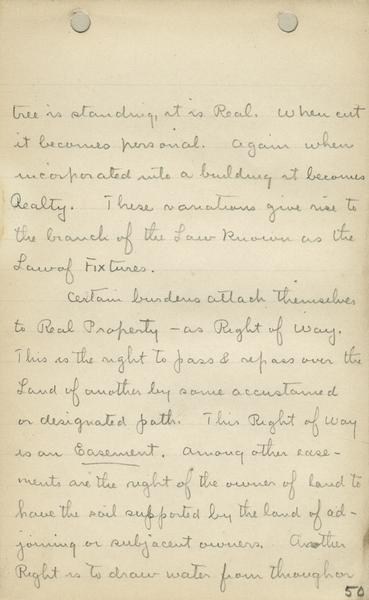 tree is standing, it is Real. When cut
it becomes personal. Again when
incorporated into a building it becomes
Realty. These variations give rise to
the branch of the Law known as the
Law of Fixtures.
Certain burdens attach themselves
to Real Property - as Right of Way.
This is the right to pass & repass over the
Land of another by some accustomed
or designated path. This Right of Way
is an Easement. Among other ease-
ments are the right of the owner of land to
have the soil supported by the land of ad-
joining or subjacent owners. Another
Right is to draw water from through or
50